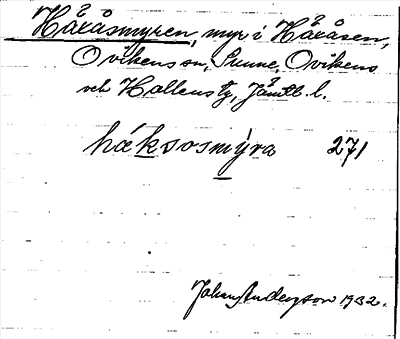 Håxåsmyren, myr i Håxåsen,
Ovikens sn, Sunne, Ovikens
och Hallens tg, Jämtl. l.
háksosmýra 271
Johan Anderson 1932.